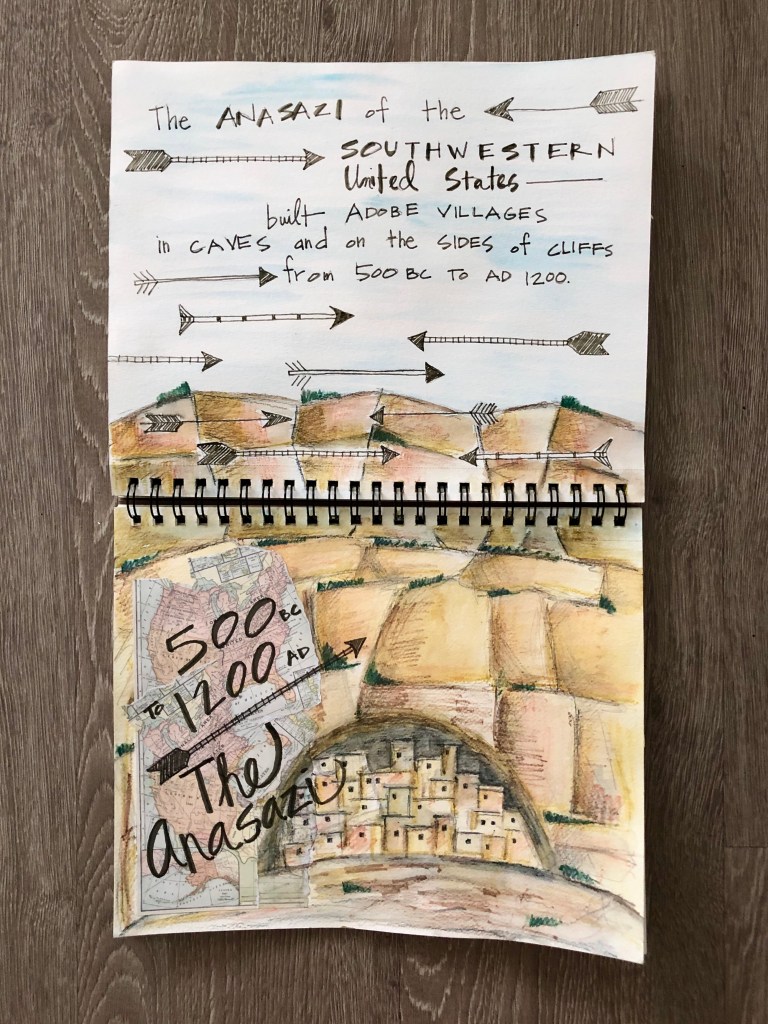 The ANASAZI of the
SOUTHWESTERN
United States
built ADOBE VILLAGES
in CAVES and on the SIDES of CLIFFS
from 500 BC TO AD 1200.
500 BC
TO 1200 AD
The
Anasazi